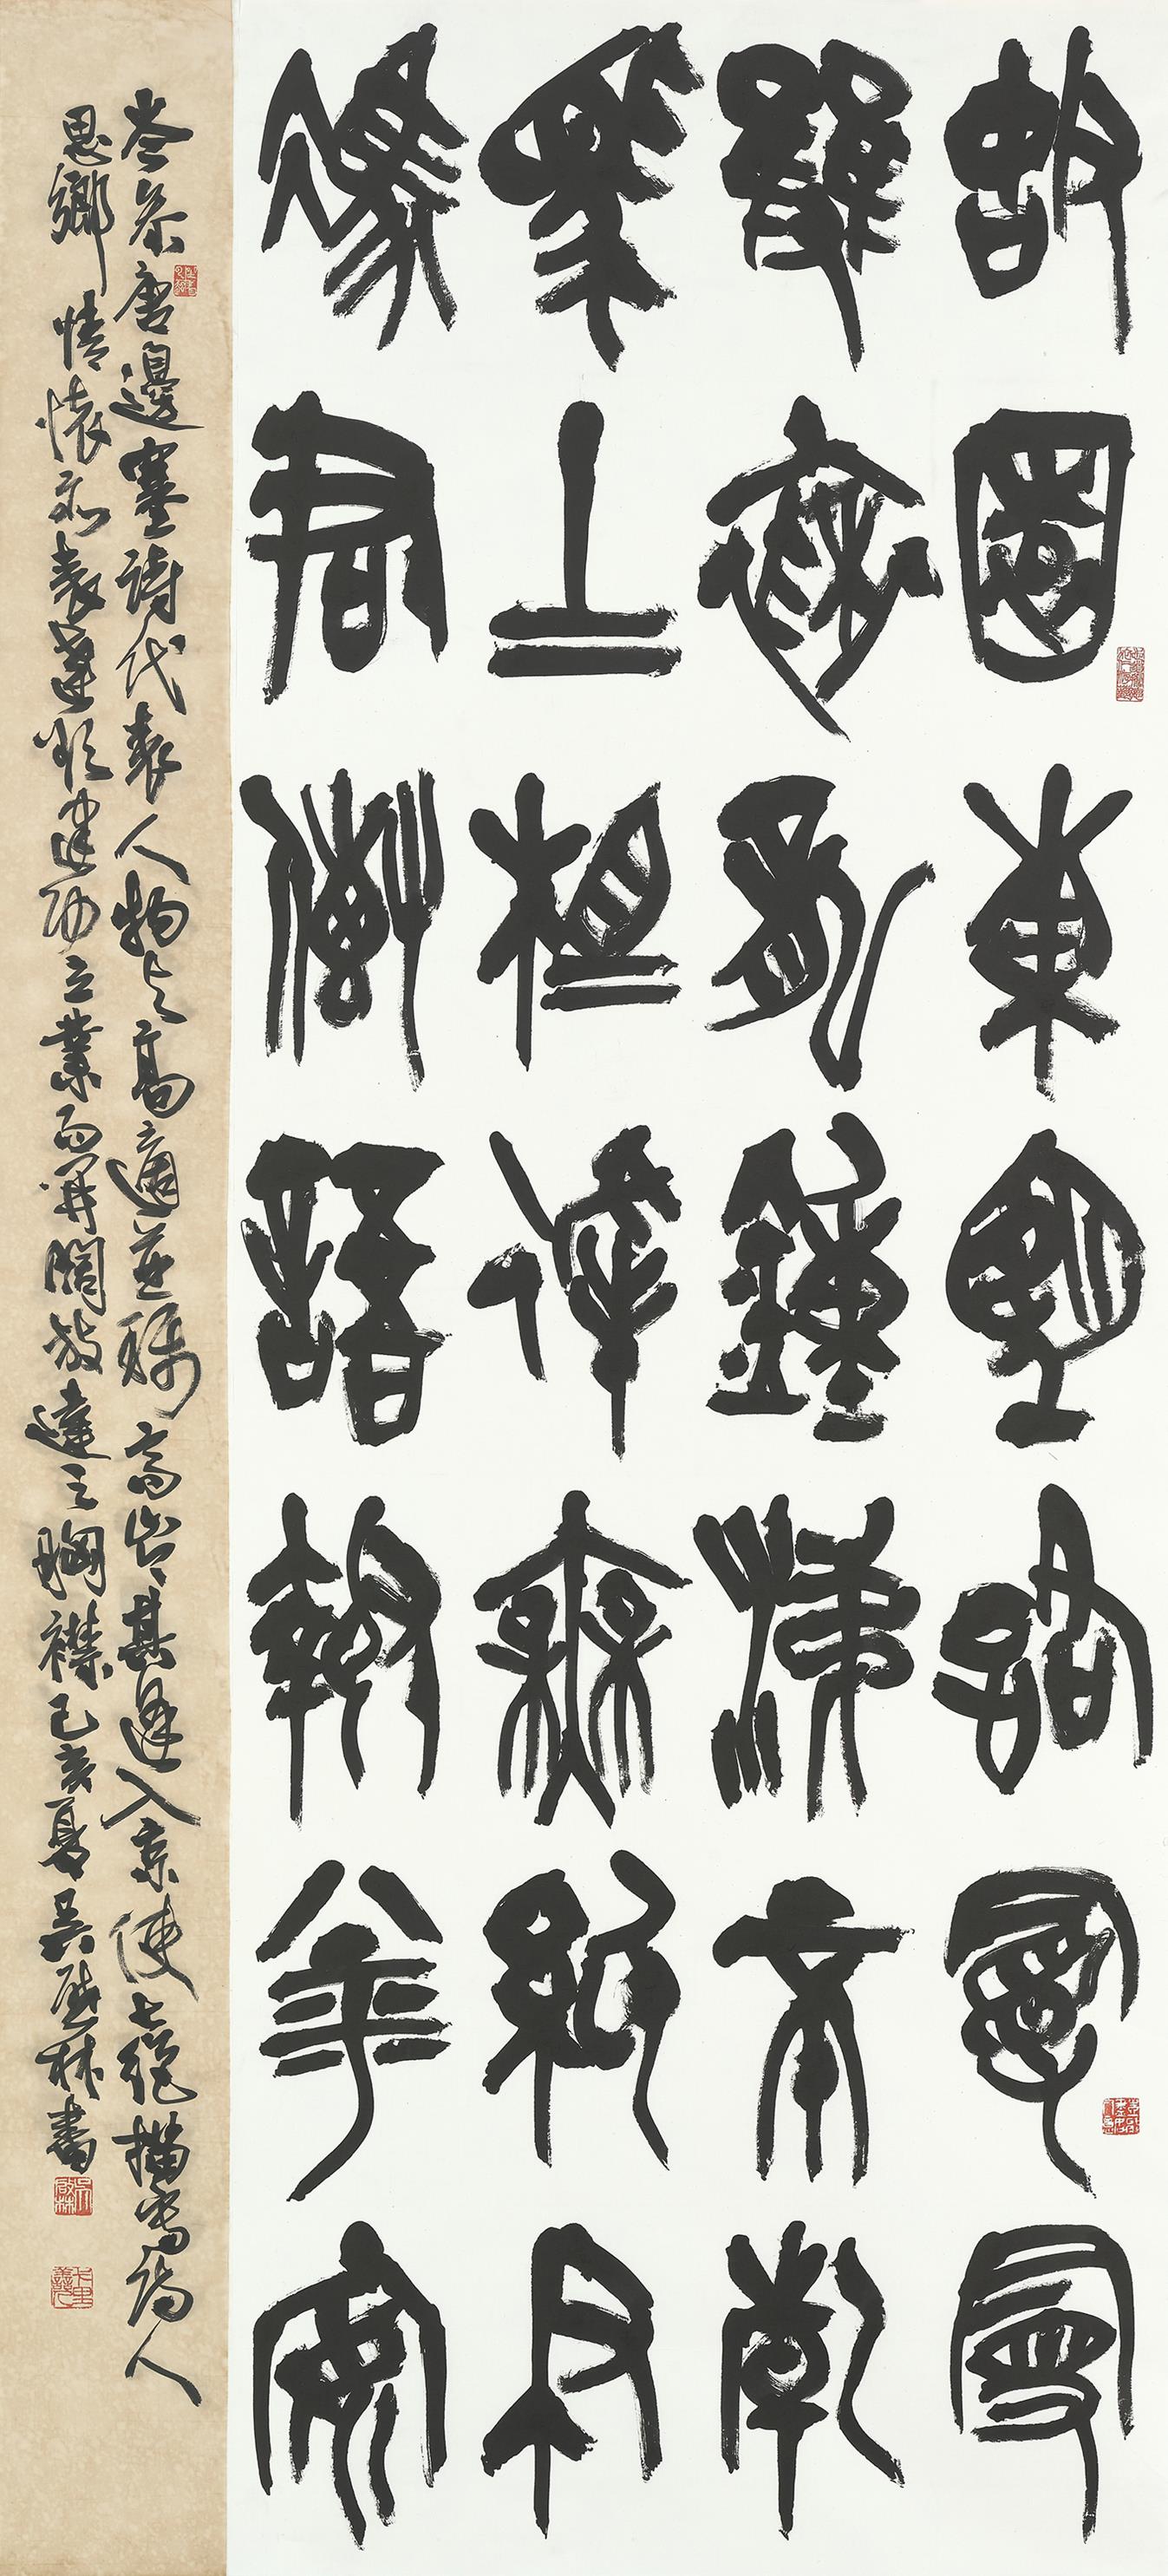 故園東望路曼曼
雙褎龍鍾涕不乾
馬上相逢無紙聿
馮君傳語報平安
岑參唐邊塞詩代表人物與高適並稱高岑其逢入京使七絕描寫詩人
思鄉情懷亦表達欲建功立業而開闊放達之胸襟己亥夏吳啟林書